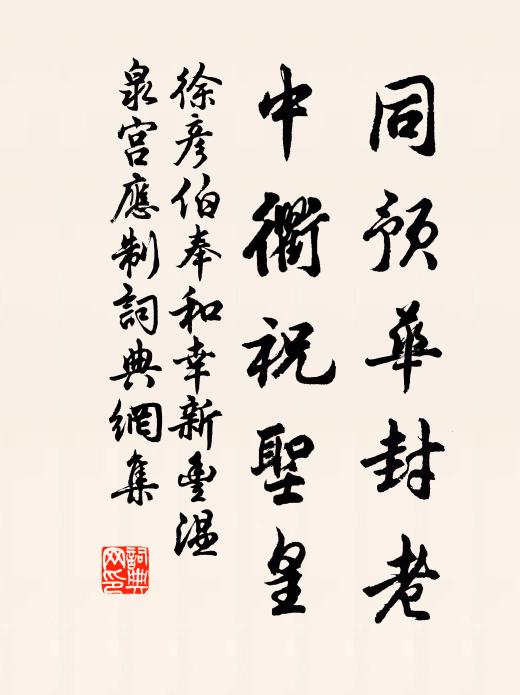 同預華封老
中衢祝聖皇
徐彥伯奉和幸新豐溫
泉宮應制詞典網集
詞典
网印